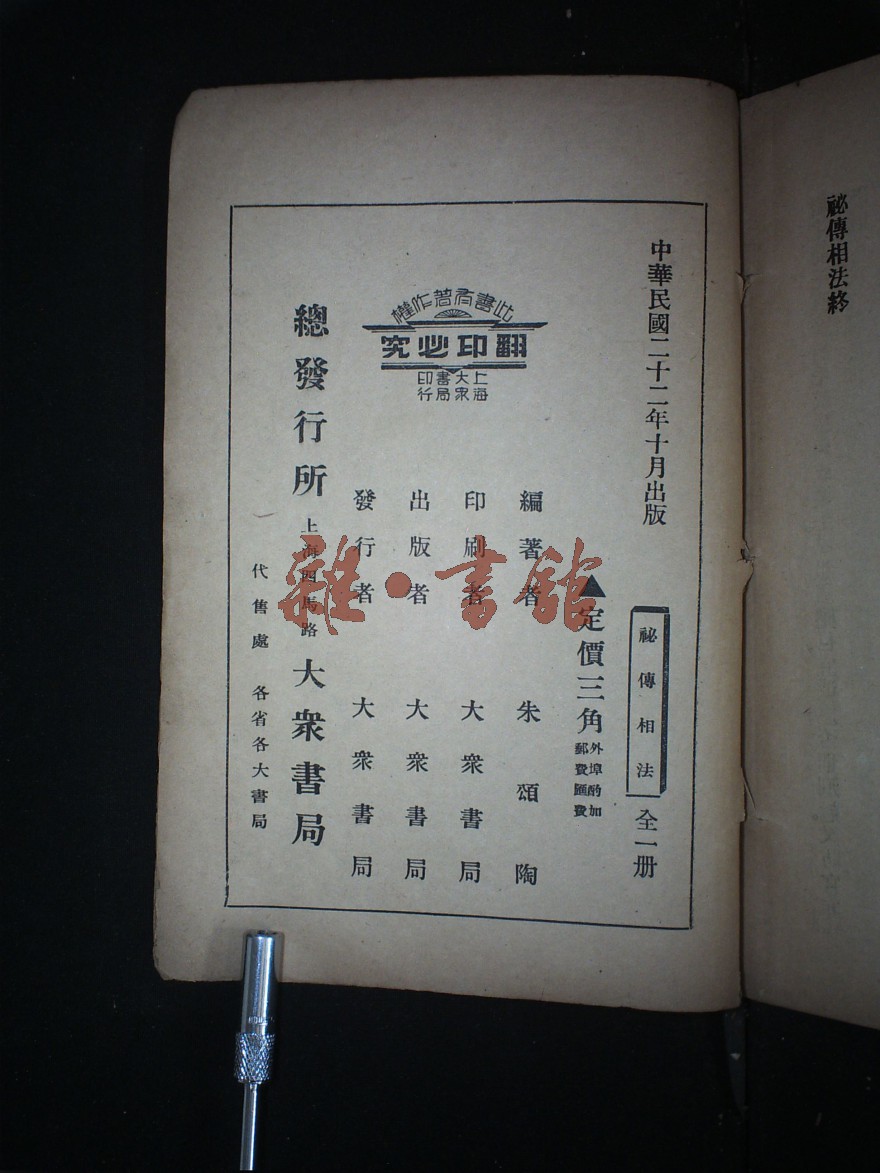 祕傳相法終
中華民國二十二年十月出版
祕傳相法
全一册
▲定價三角
外埠酌加
郵費匯費
編著者 朱頌陶
印刷者 大衆書局
出版者 大衆書局
發行者 大衆書局
此書有著作權
翻印必究
上海
大衆
書局
印行
總發行所 上海四馬路 大衆書局
代售處 各省各大書局
雜·書館